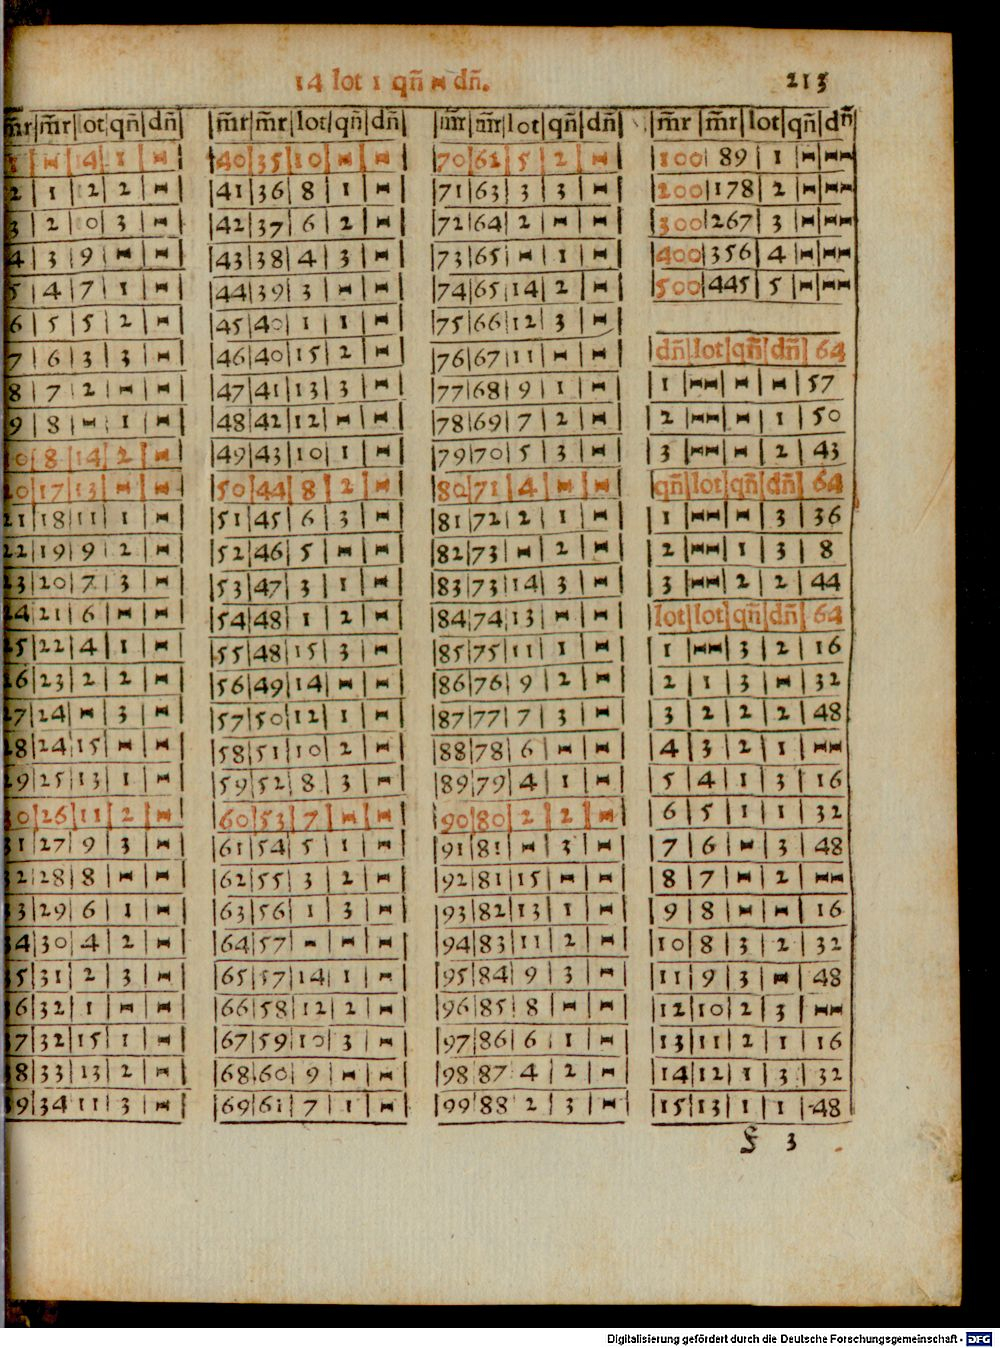 14 lot 1 qñ ⧓ dñ.
213
m̃r|m̃r|lot|qñ|dñ|
1|⧓|14|1|⧓|
2|1|12|2|⧓|
3|2|10|3|⧓|
4|3|9|⧓|⧓|
5|4|7|1|⧓|
6|5|5|2|⧓|
7|6|3|3|⧓|
8|7|2|⧓|⧓|
9|8|⧓|1|⧓|
10|8|14|2|⧓|
20|17|13|⧓|⧓|
21|18|11|1|⧓|
22|19|9|2|⧓|
23|20|7|3|⧓|
24|21|6|⧓|⧓|
25|22|4|1|⧓|
26|23|2|2|⧓|
27|24|⧓|3|⧓|
28|24|15|⧓|⧓|
29|25|13|1|⧓|
30|26|11|2|⧓|
31|27|9|3|⧓|
32|28|8|⧓|⧓|
33|29|6|1|⧓|
34|30|4|2|⧓|
35|31|2|3|⧓|
36|32|1|⧓|⧓|
37|32|15|1|⧓|
38|33|13|2|⧓|
39|34|11|3|⧓|
|m̃r|m̃r|lot|qñ|dñ|
|40|35|10|⧓|⧓|
|41|36|8|1|⧓|
|42|37|6|2|⧓|
|43|38|4|3|⧓|
|44|39|3|⧓|⧓|
|45|40|1|1|⧓|
|46|40|15|2|⧓|
|47|41|13|3|⧓|
|48|42|12|⧓|⧓|
|49|43|10|1|⧓|
|50|44|8|2|⧓|
|51|45|6|3|⧓|
|52|46|5|⧓|⧓|
|53|47|3|1|⧓|
|54|48|1|2|⧓|
|55|48|15|3|⧓|
|56|49|14|⧓|⧓|
|57|50|12|1|⧓|
|58|51|10|2|⧓|
|59|52|8|3|⧓|
|60|53|7|⧓|⧓|
|61|54|5|1|⧓|
|62|55|3|2|⧓|
|63|56|1|3|⧓|
|64|57|⧓|⧓|⧓|
|65|57|14|1|⧓|
|66|58|12|2|⧓|
|67|59|10|3|⧓|
|68|60|9|⧓|⧓|
|69|61|7|1|⧓|
|m̃r|m̃r|lot|qñ|dñ|
|70|62|5|2|⧓|
|71|63|3|3|⧓|
|72|64|2|⧓|⧓|
|73|65|⧓|1|⧓|
|74|65|14|2|⧓|
|75|66|12|3|⧓|
|76|67|11|⧓|⧓|
|77|68|9|1|⧓|
|78|69|7|2|⧓|
|79|70|5|3|⧓|
|80|71|4|⧓|⧓|
|81|72|2|1|⧓|
|82|73|⧓|2|⧓|
|83|73|14|3|⧓|
|84|74|13|⧓|⧓|
|85|75|11|1|⧓|
|86|76|9|2|⧓|
|87|77|7|3|⧓|
|88|78|6|⧓|⧓|
|89|79|4|1|⧓|
|90|80|2|2|⧓|
|91|81|⧓|3|⧓|
|92|81|15|⧓|⧓|
|93|82|13|1|⧓|
|94|83|11|2|⧓|
|95|84|9|3|⧓|
|96|85|8|⧓|⧓|
|97|86|6|1|⧓|
|98|87|4|2|⧓|
|99|88|2|3|⧓|
|m̃r|m̃r|lot|qñ|dñ
|100|89|1|⧓|⧓⧓
|200|178|2|⧓|⧓⧓
|300|267|3|⧓|⧓⧓
|400|356|4|⧓|⧓⧓
|500|445|5|⧓|⧓⧓
|dñ|lot|qñ|dñ|64
|1|⧓⧓|⧓|⧓|57
|2|⧓⧓|⧓|1|50
|3|⧓⧓|⧓|2|43
|qñ|lot|qñ|dñ|64
|1|⧓⧓|⧓|3|36
|2|⧓⧓|1|3|8
|3|⧓⧓|2|2|44
|lot|lot|qñ|dñ|64
|1|⧓⧓|3|2|16
|2|1|3|⧓|32
|3|2|2|2|48
|4|3|2|1|⧓⧓
|5|4|1|3|16
|6|5|1|1|32
|7|6|⧓|3|48
|8|7|⧓|2|⧓⧓
|9|8|⧓|⧓|16
|10|8|3|2|32
|11|9|3|⧓|48
|12|10|2|3|⧓⧓
|13|11|2|1|16
|14|12|1|3|32
|15|13|1|1|48
F 3
Digitalisierung gefördert durch die Deutsche Forschungsgemeinschaft - DFG